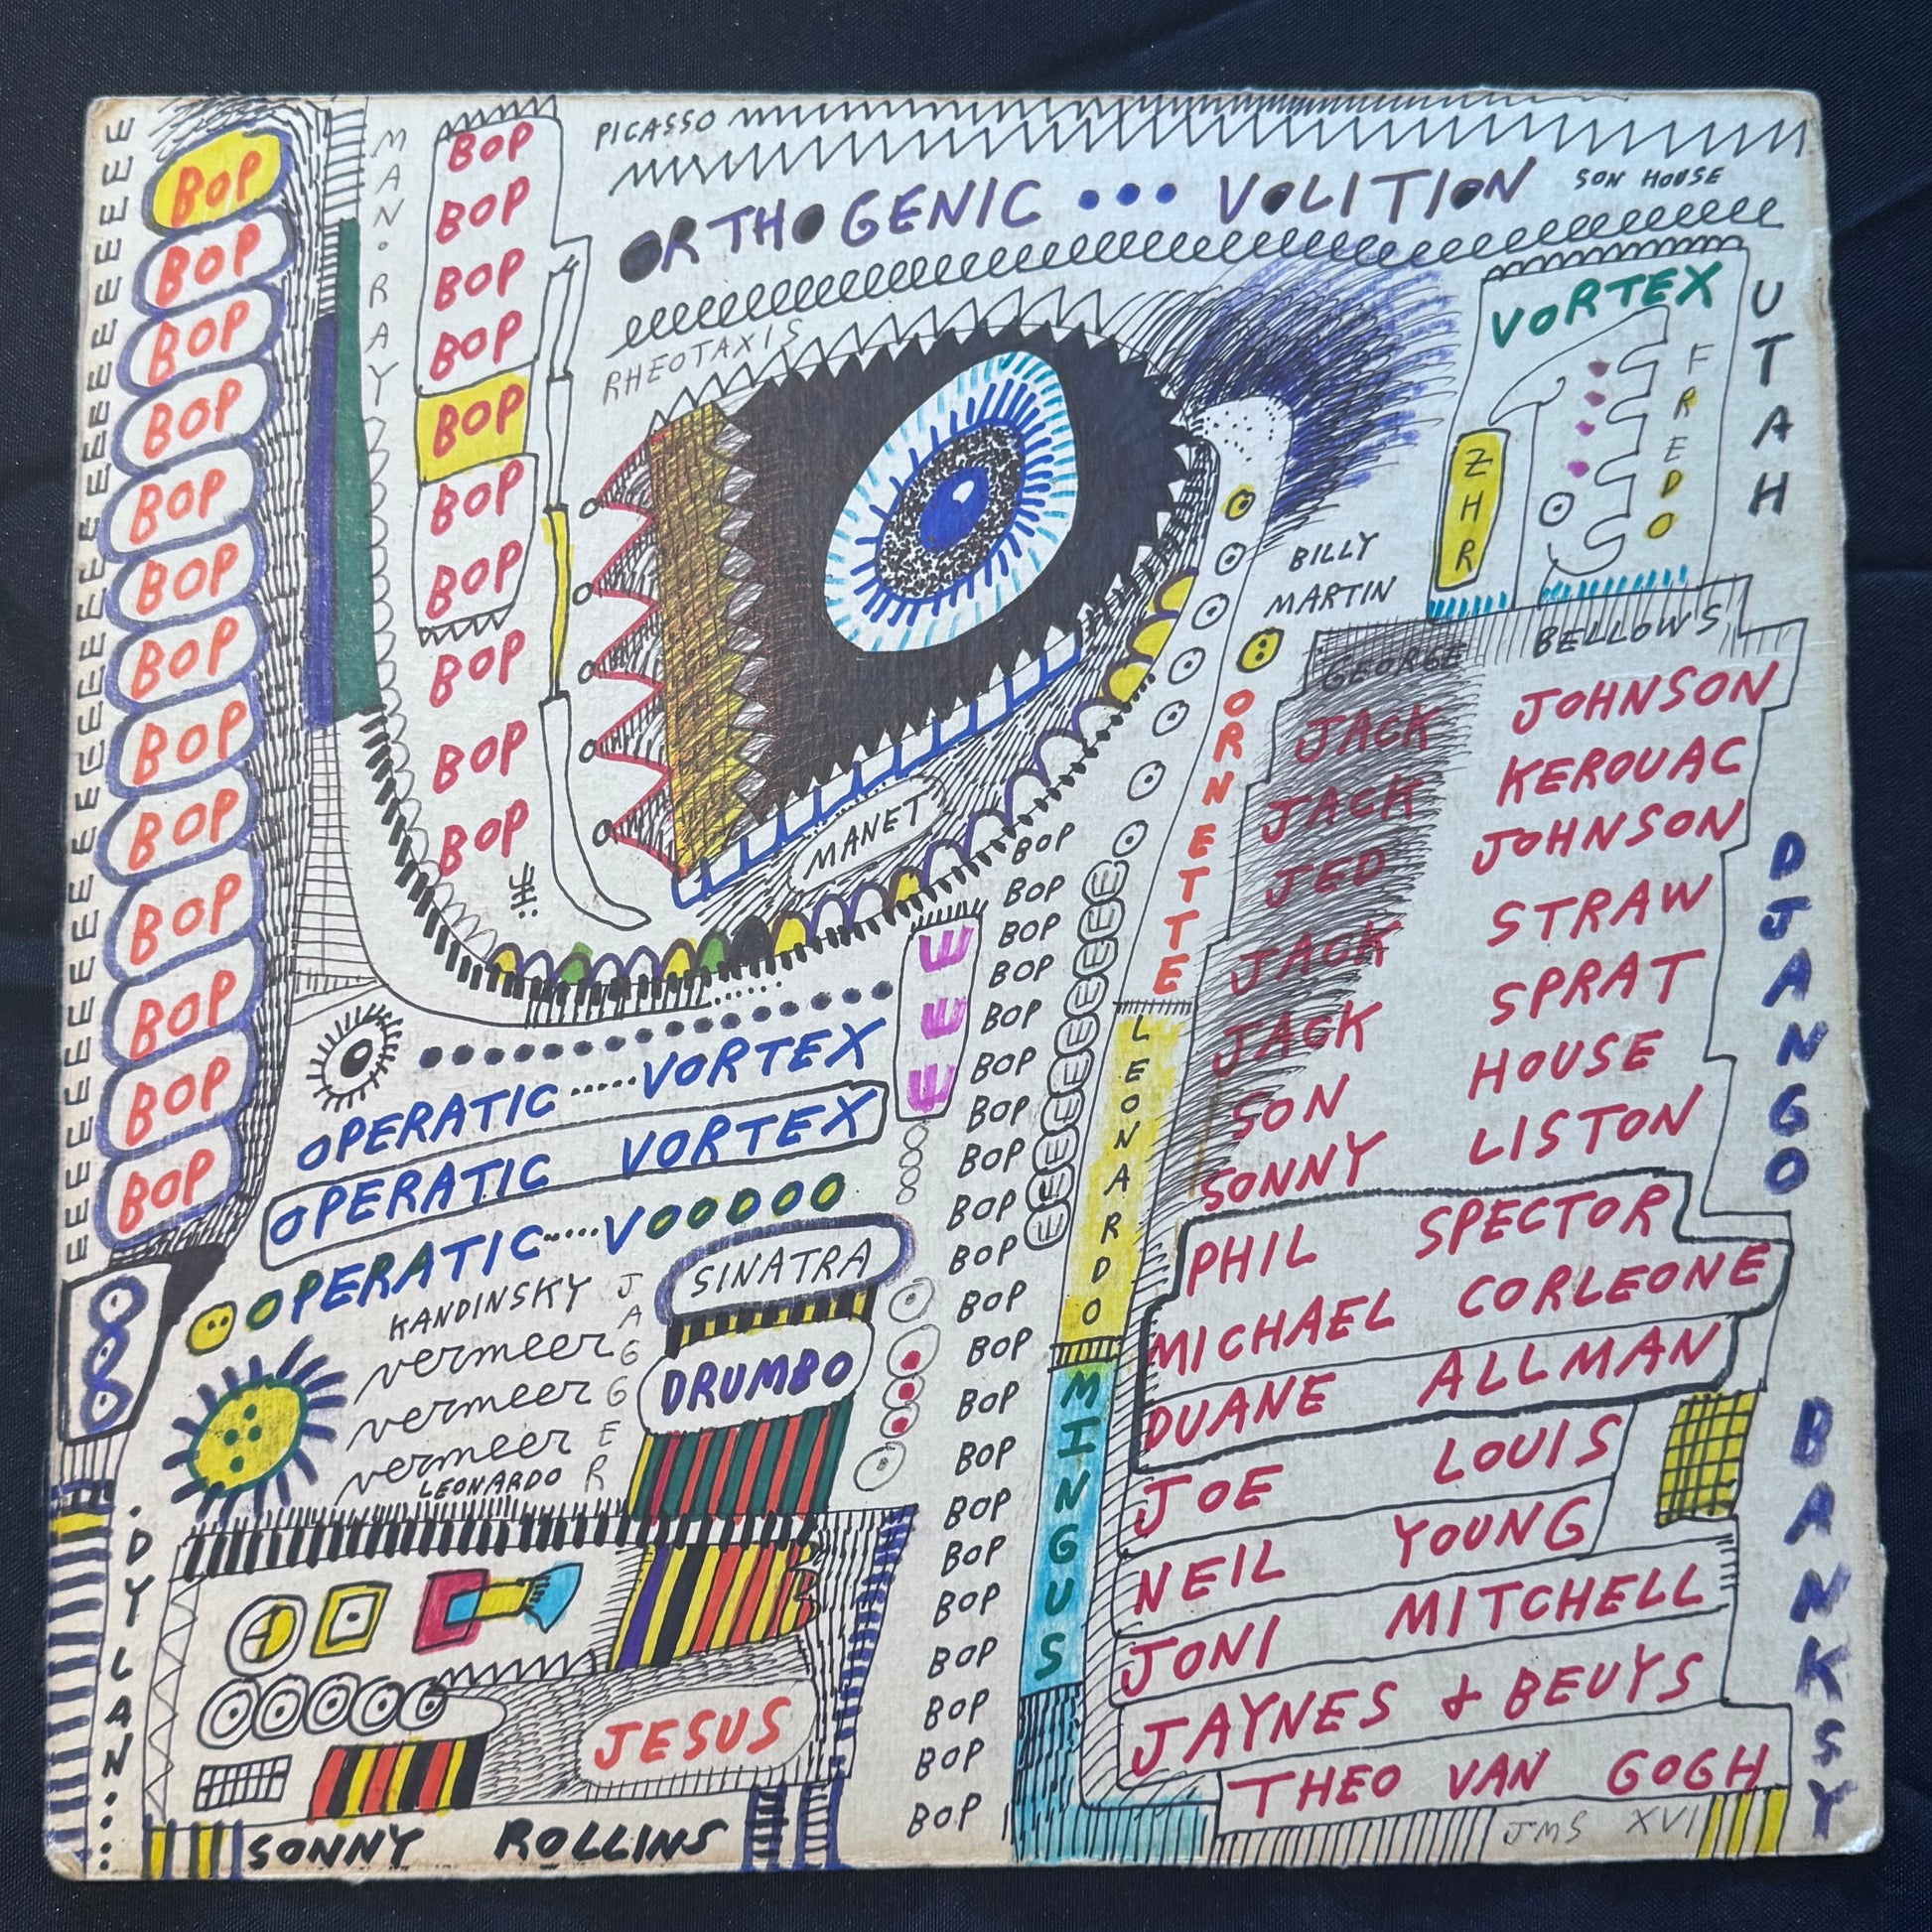 BOP
BOP
BOP
BOP
BOP
BOP
BOP
BOP
BOP
BOP
BOP
BOP
BOP
MAN RAY
BOP
BOP
BOP
BOP
BOP
BOP
BOP
BOP
BOP
BOP
PICASSO
ORTHOGENIC ... VOLITION
SON HOUSE
RHEOTAXIS
MANET
VORTEX
FREDO
ZHR
UTAH
BILLY
MARTIN
ORNETTE
LEONARDO
MINGUS
GEORGE BELLOWS
JACK JOHNSON
JACK KEROUAC
JED JOHNSON
JACK STRAW
JACK SPRAT
SON HOUSE
SONNY LISTON
PHIL SPECTOR
MICHAEL CORLEONE
DUANE ALLMAN
JOE LOUIS
NEIL YOUNG
JONI MITCHELL
JAYNES & BEUYS
THEO VAN GOGH
DJANGO
BANKSY
BOP
BOP
BOP
BOP
BOP
BOP
BOP
BOP
BOP
BOP
BOP
BOP
BOP
BOP
BOP
BOP
BOP
BOP
BOP
BOP
BOP
OPERATIC.....VORTEX
OPERATIC VORTEX
OPERATIC.....VOODOO
KANDINSKY
vermeer
vermeer
vermeer
LEONARDO
JAGGER
SINATRA
DRUMBO
.DYLAN....
JESUS
SONNY ROLLINS
JMS XVI